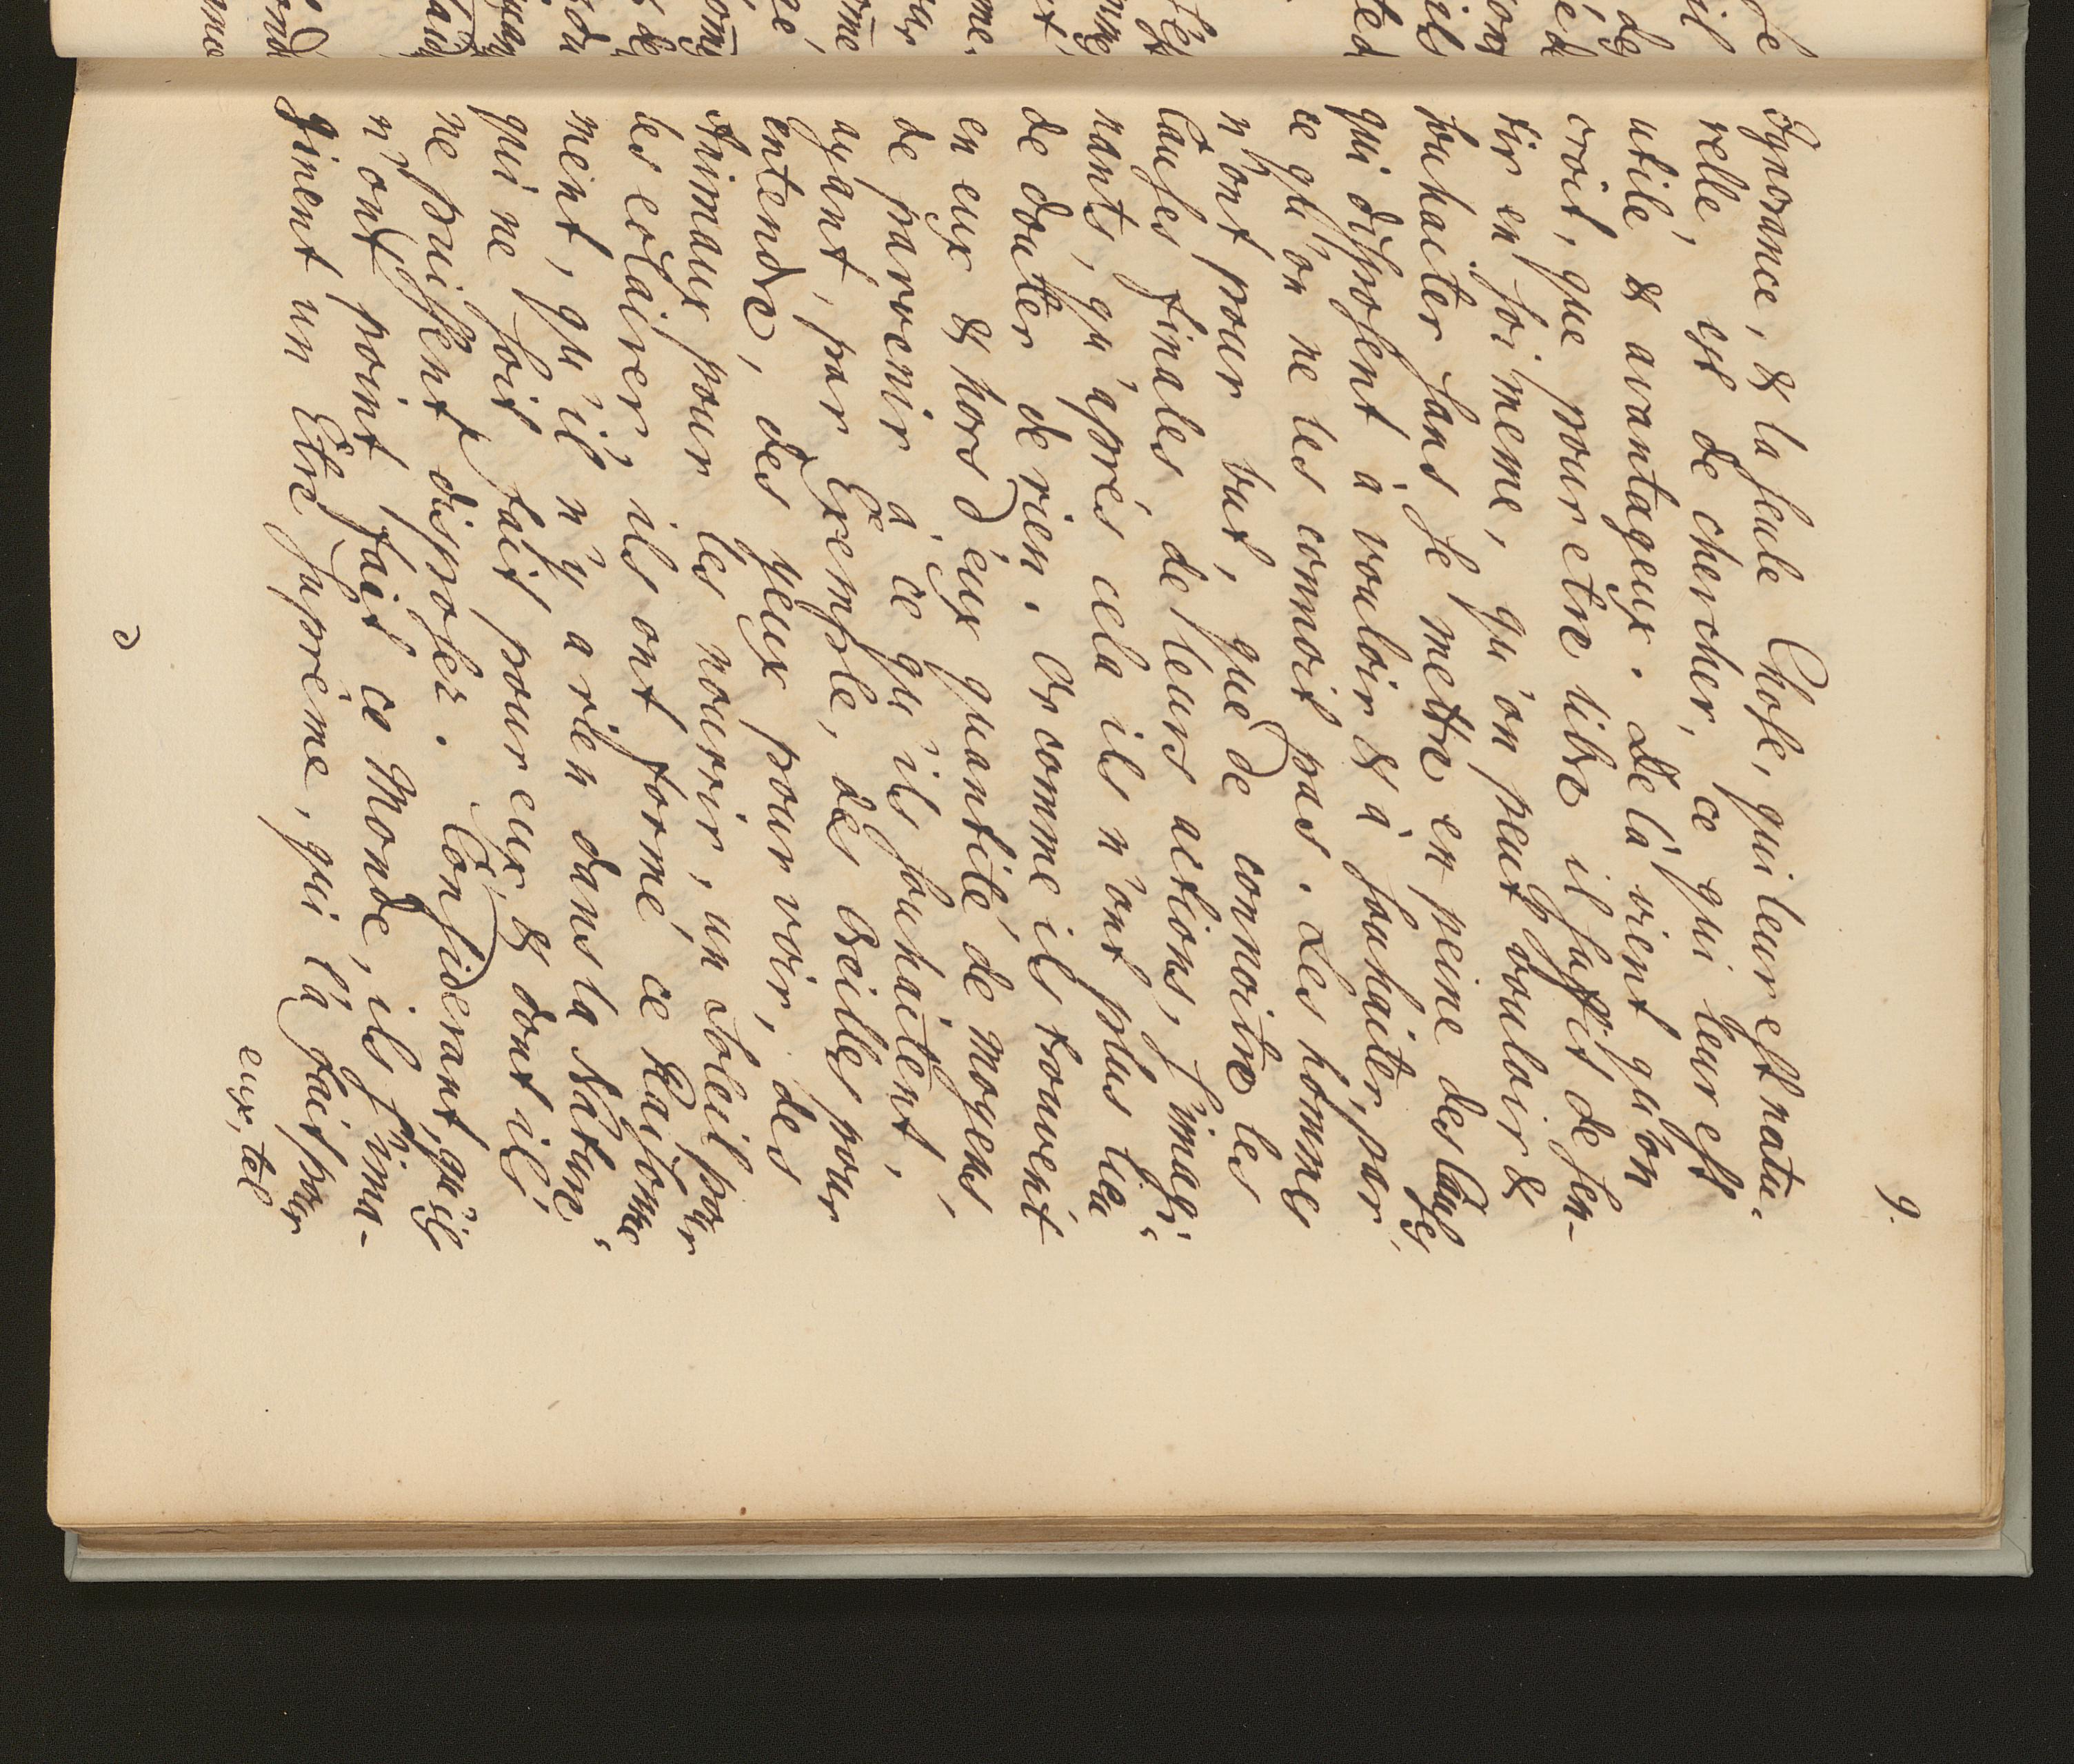 9.
Ignorance, & la seule Chose, qui leur est natu-
relle, est de chercher, ce qui leur est
utile & avantageux. De là vient qu'on
croit, que pour etre libre il suffit de sen-
tir en soi meme, qu'on peut vouloir &
souhaiter sans se mettre en peine des Causes,
qui disposent à vouloir & à souhaiter, par-
ce qu'on ne les connoit pas. Les hommes
n'ont pour but, que de connoitre les
Causes finales de leurs actions, s'imagi-
nants, qu'aprés cela ils n'ont plus lieu
de douter de rien. Or comme ils trouvent
en eux & hors d'eux quantité de moyens,
de parvenir à ce qu'ils souhaitent,
ayant, par Exemple, des Oreilles pour
entendre, des yeux pour voir, des
Animaux pour les nourrir, un Soleil pour
les eclairer, ils ont formé ce Raisonne-
ment, qu'il n'y a rien dans la Nature,
qui ne soit fait pour eux, & dont ils
ne puissent disposer. Considerant, qu'ils
n'ont point fait ce Monde, ils s'ima-
ginent un Etre supréme, qui l'a fait pour
eux, tel